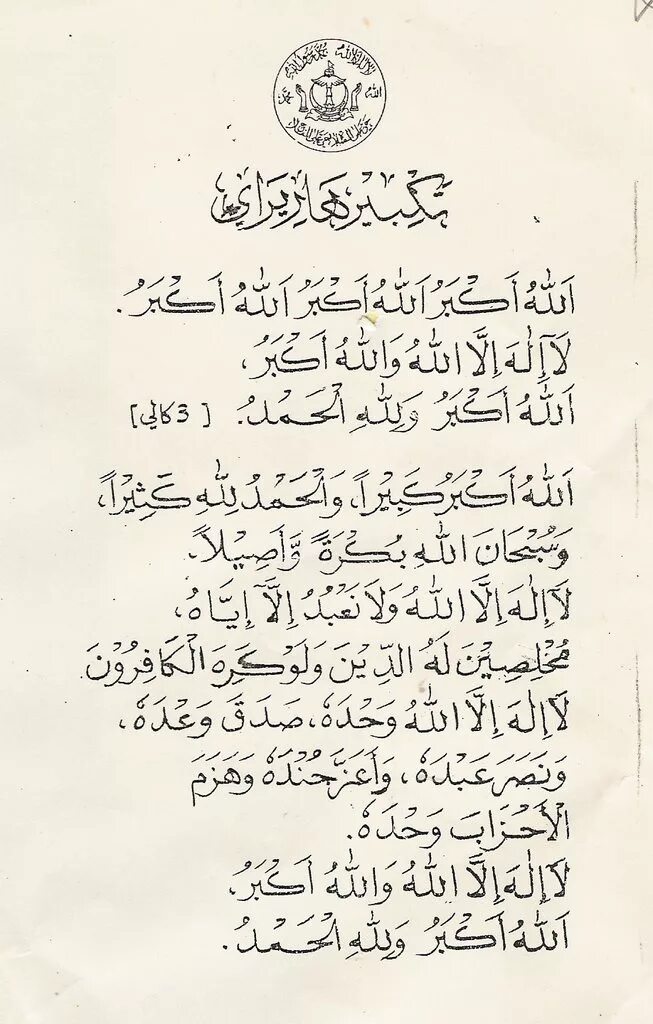 لا إله إلا الله محمد رسول الله
الله
محمد
تكبير هاري راي
اَللهُ أَكْبَرُ اَللهُ أَكْبَرُ اَللهُ أَكْبَرُ.
لَآ إِلٰهَ إِلَّا اللهُ وَاللهُ أَكْبَرُ،
اَللهُ أَكْبَرُ وَلِلّٰهِ الْحَمْدُ. [3 كالي]
اَللهُ أَكْبَرُ كَبِيْرًا، وَالْحَمْدُ لِلّٰهِ كَثِيْرًا،
وَسُبْحَانَ اللهِ بُكْرَةً وَّأَصِيْلاً.
لَآ إِلٰهَ إِلَّا اللهُ وَلَا نَعْبُدُ إِلَّآ إِيَّاهُ،
مُخْلِصِيْنَ لَهُ الدِّيْنَ وَلَوْكَرِهَ الْكَافِرُوْنَ
لَآ إِلٰهَ إِلَّا اللهُ وَحْدَهٗ، صَدَقَ وَعْدَهٗ،
وَنَصَرَ عَبْدَهٗ، وَأَعَزَّ جُنْدَهٗ وَهَزَمَ
الْأَحْزَابَ وَحْدَهٗ.
لَآ إِلٰهَ إِلَّا اللهُ وَاللهُ أَكْبَرُ.
اَللهُ أَكْبَرُ وَلِلّٰهِ الْحَمْدُ.